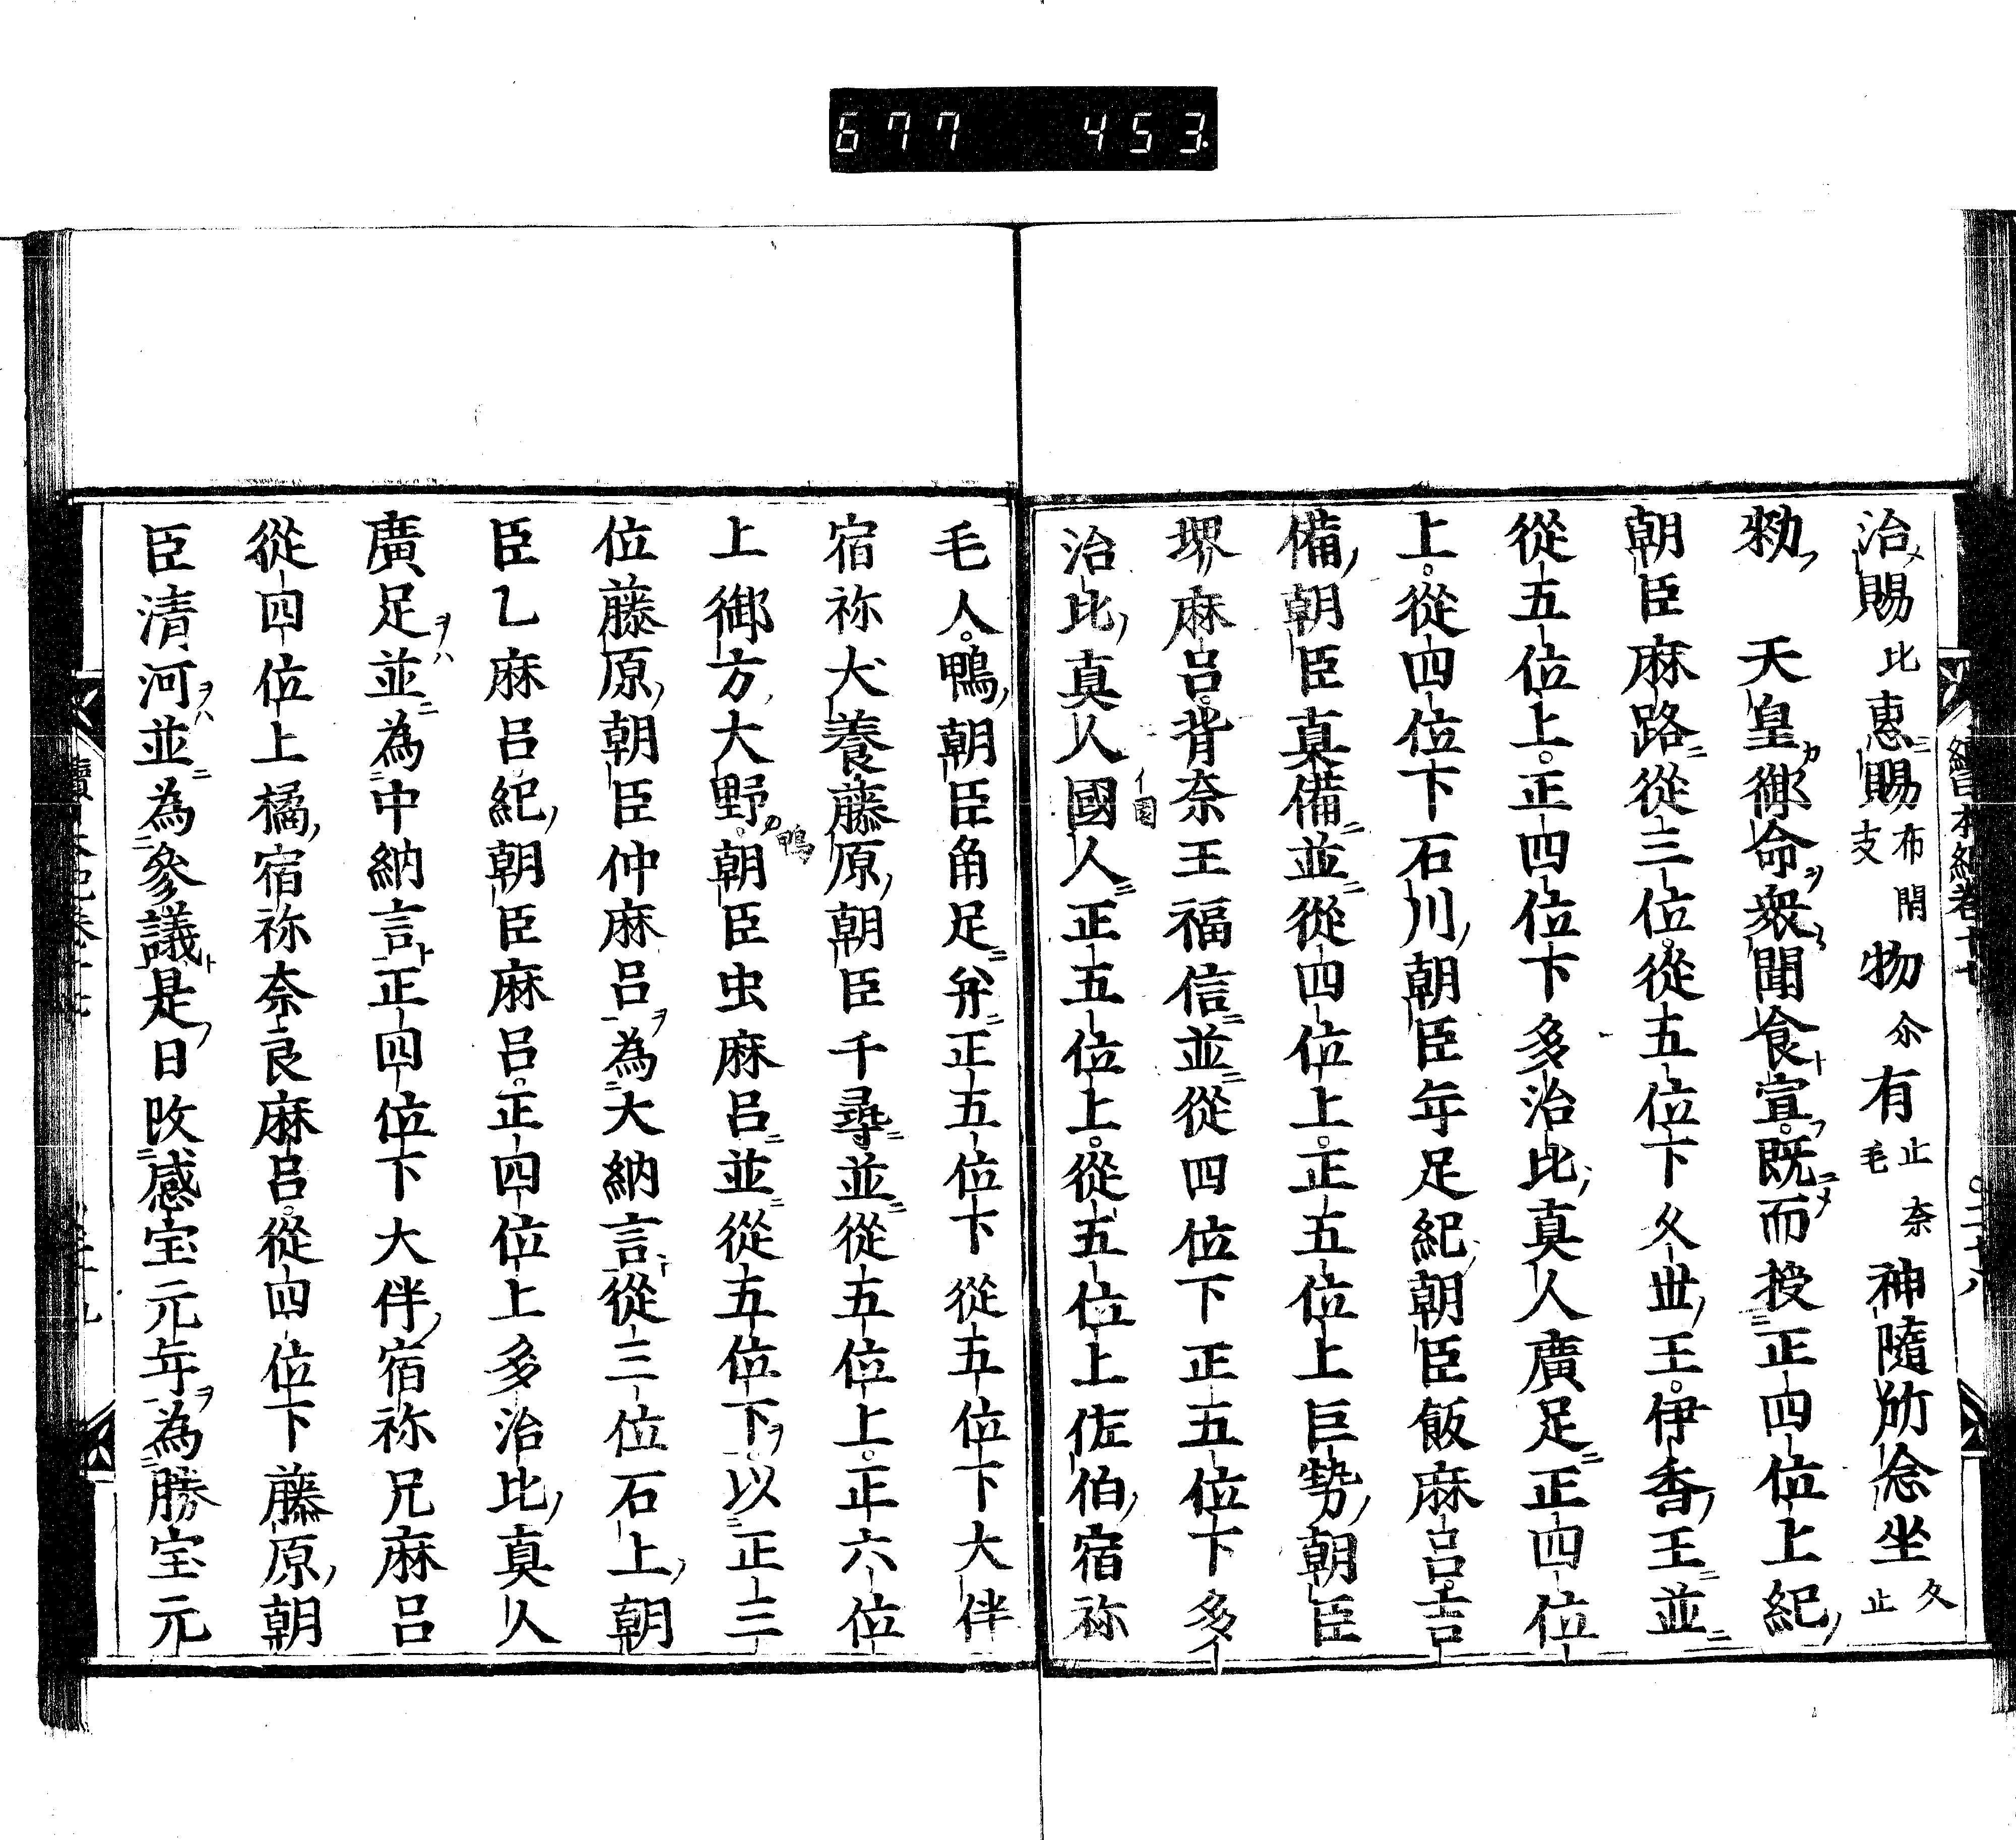 677 453
續日本紀卷十七 ○二十八
治賜比惠賜布支閇物尒有止毛奈神隨所念坐久止
勑天皇御命衆聞食宣。既而授正四位上紀
朝臣麻路從三位。從五位下久世王。伊香王並
從五位上。正四位下多治比真人廣足正四位
上。從四位下石川朝臣年足紀朝臣飯麻呂。吉
備朝臣真備並從四位上。正五位上巨勢朝臣
堺麻呂。背奈王福信並從四位下正五位下多
治比真人國人正五位上。從五位上佐伯宿祢
イ園
毛人。鴨朝臣角足並正五位下從五位下大伴
宿祢犬養藤原朝臣千尋並從五位上。正六位
上御方大野。鴨朝臣虫麻呂並從五位下。以正三
位藤原朝臣仲麻呂為大納言從三位石上朝
臣乙麻呂紀朝臣麻呂。正四位上多治比真人
廣足並為中納言正四位下大伴宿祢兄麻呂
從四位上橘宿祢奈良麻呂。從四位下藤原朝
臣清河並為參議是日改感宝元年為勝宝元